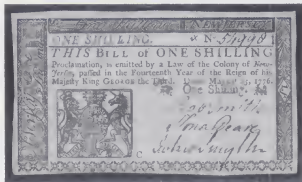 NEW-JERSEY
ONE SHILLING. N
THIS BILL of ONE SHILLING
Proclamation, is emitted by a Law of the Colony of New-
Jersey, passed in the Fourteenth Year of the Reign of his
Majesty King GEORGE the Third. March 25, 1776.
One Shilling.
Jos Smith
Jona
John Smyth
C